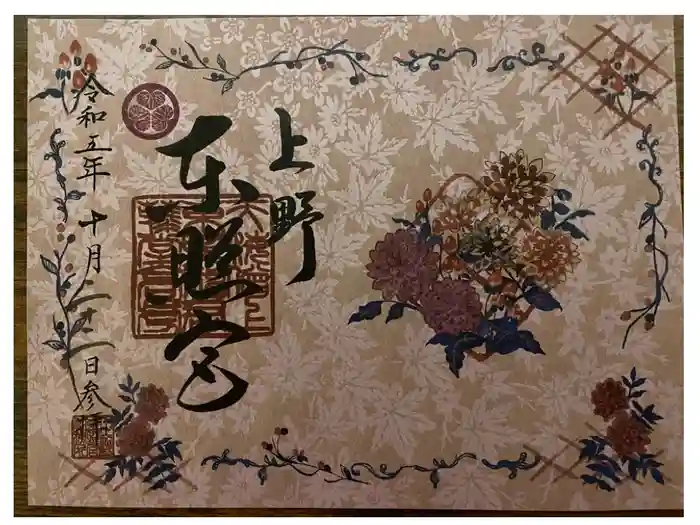 上野
東照宮
令和五年十月二十二日参